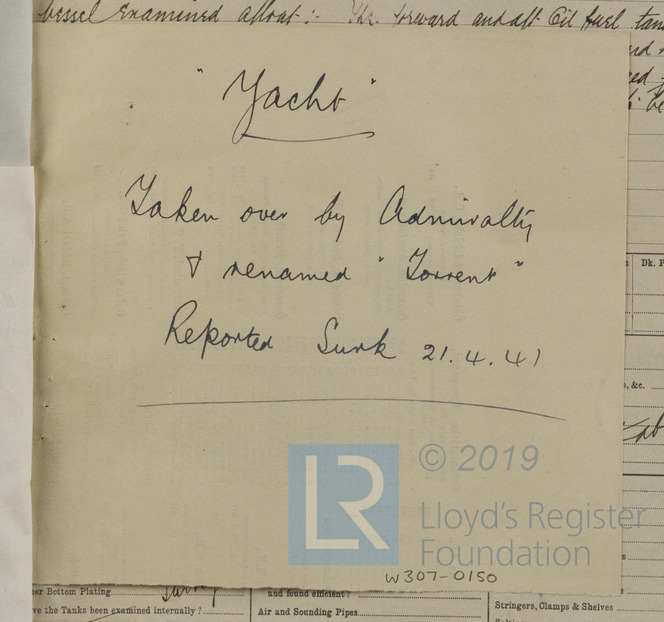 vessel Examined afloat:- The forward and aft Oil fuel tan
"Yacht"
Taken over by Admiralty
& renamed "Torrent"
Reported Sunk 21.4.41
LR
© 2019
Lloyd's Register
Foundation
W307-0150
Dk. P
s, &c.
er Bottom Plating
ve the Tanks been examined internally?
and found efficient?
Air and Sounding Pipes
Stringers, Clamps & Shelves